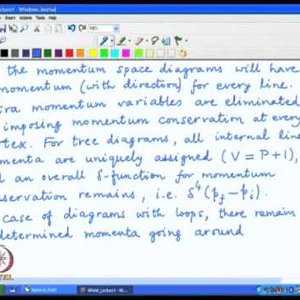 the momentum space diagrams will have
momentum (with direction) for every line.
tra momentum variables are eliminated
imposing momentum conservation at every
tex. For tree diagrams, all internal line
menta are uniquely assigned (V = P+1),
d an overall δ-function for momentum
servation remains, i.e. δ⁴(p_f - p_i).
case of diagrams with loops, there remain
determined momenta going around